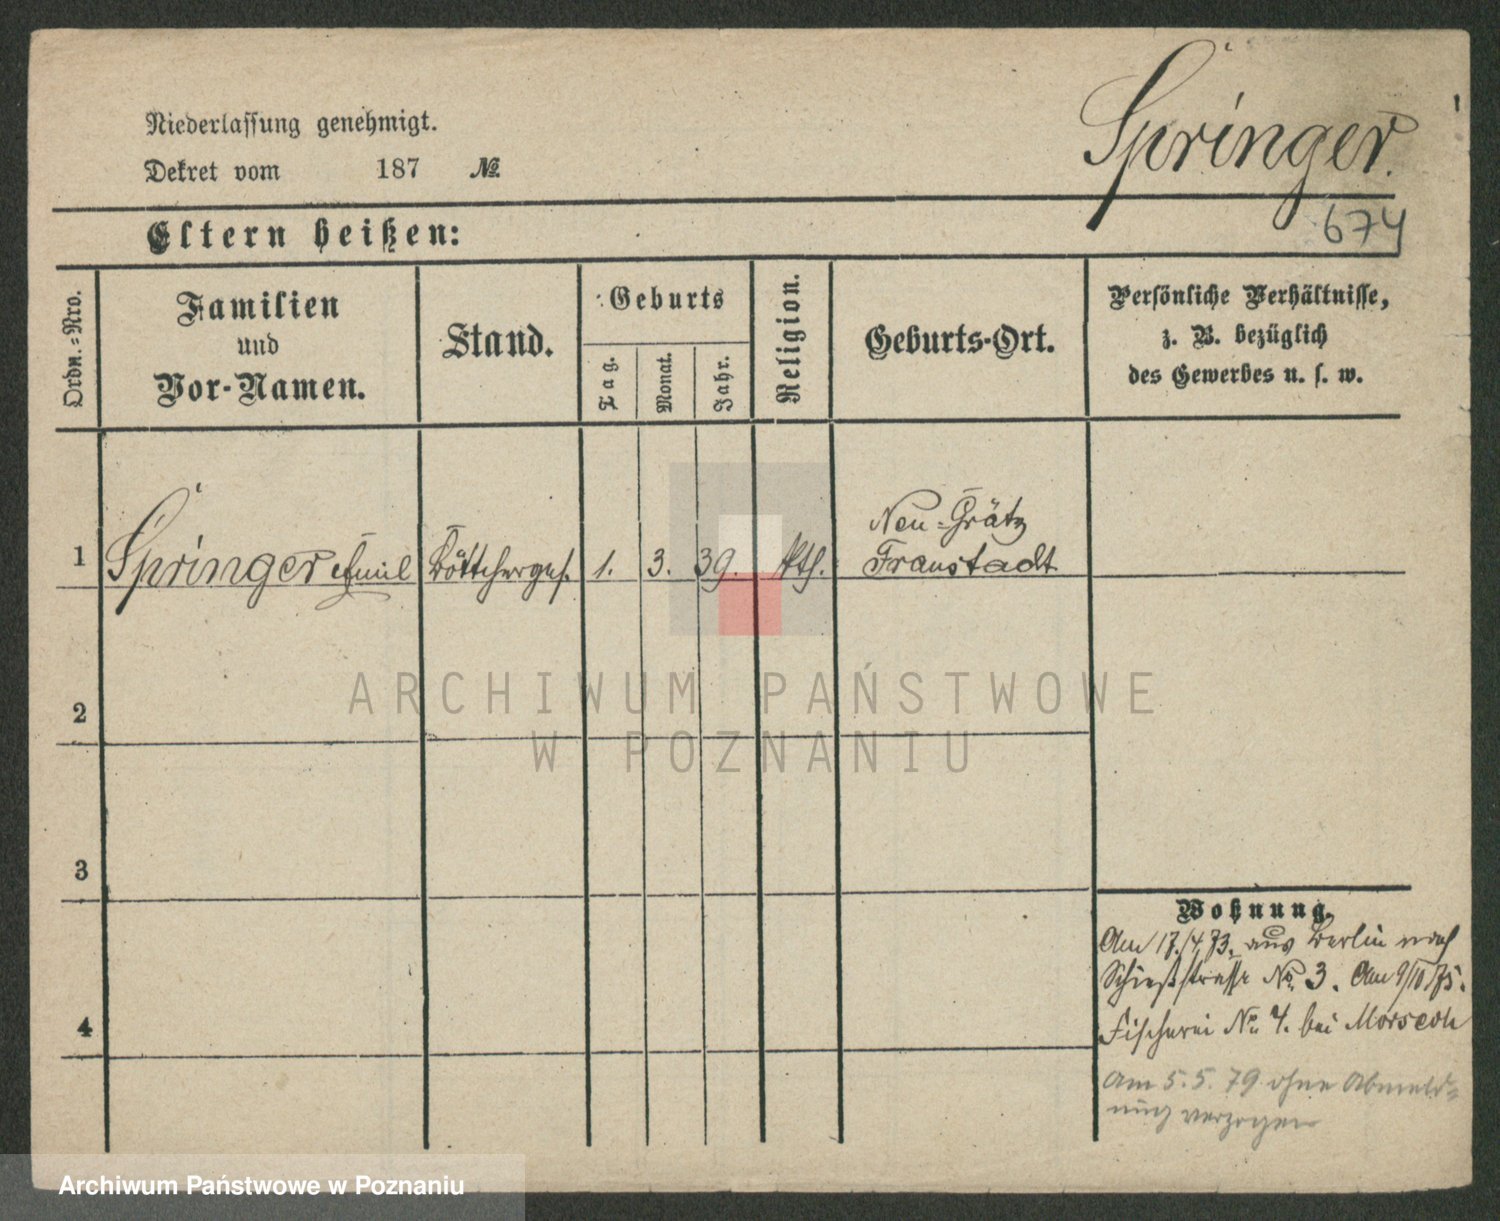 Niederlassung genehmigt.
Dekret vom 187 №
Springer.
674
Eltern heißen:
Ordn.=Nro.
Familien
und
Vor-Namen.
Stand.
Geburts
Tag.
Monat.
Jahr.
Religion.
Geburts-Ort.
Persönliche Verhältnisse,
z. B. bezüglich
des Gewerbes u. s. w.
Neu=Grätz
1 Springer Emil Böttcherges. 1. 3. 39. kth. Fraustadt
2
3
4
Wohnung.
Am 17./4.73. aus Berlin nach
Schießstrasse No. 3. Am 9/10/75.
Fischerei No 4. bei
Am 5.5.79 ohne Abmeld=
ung verzogen
ARCHIWUM PAŃSTWOWE
W POZNANIU
Archiwum Państwowe w Poznaniu